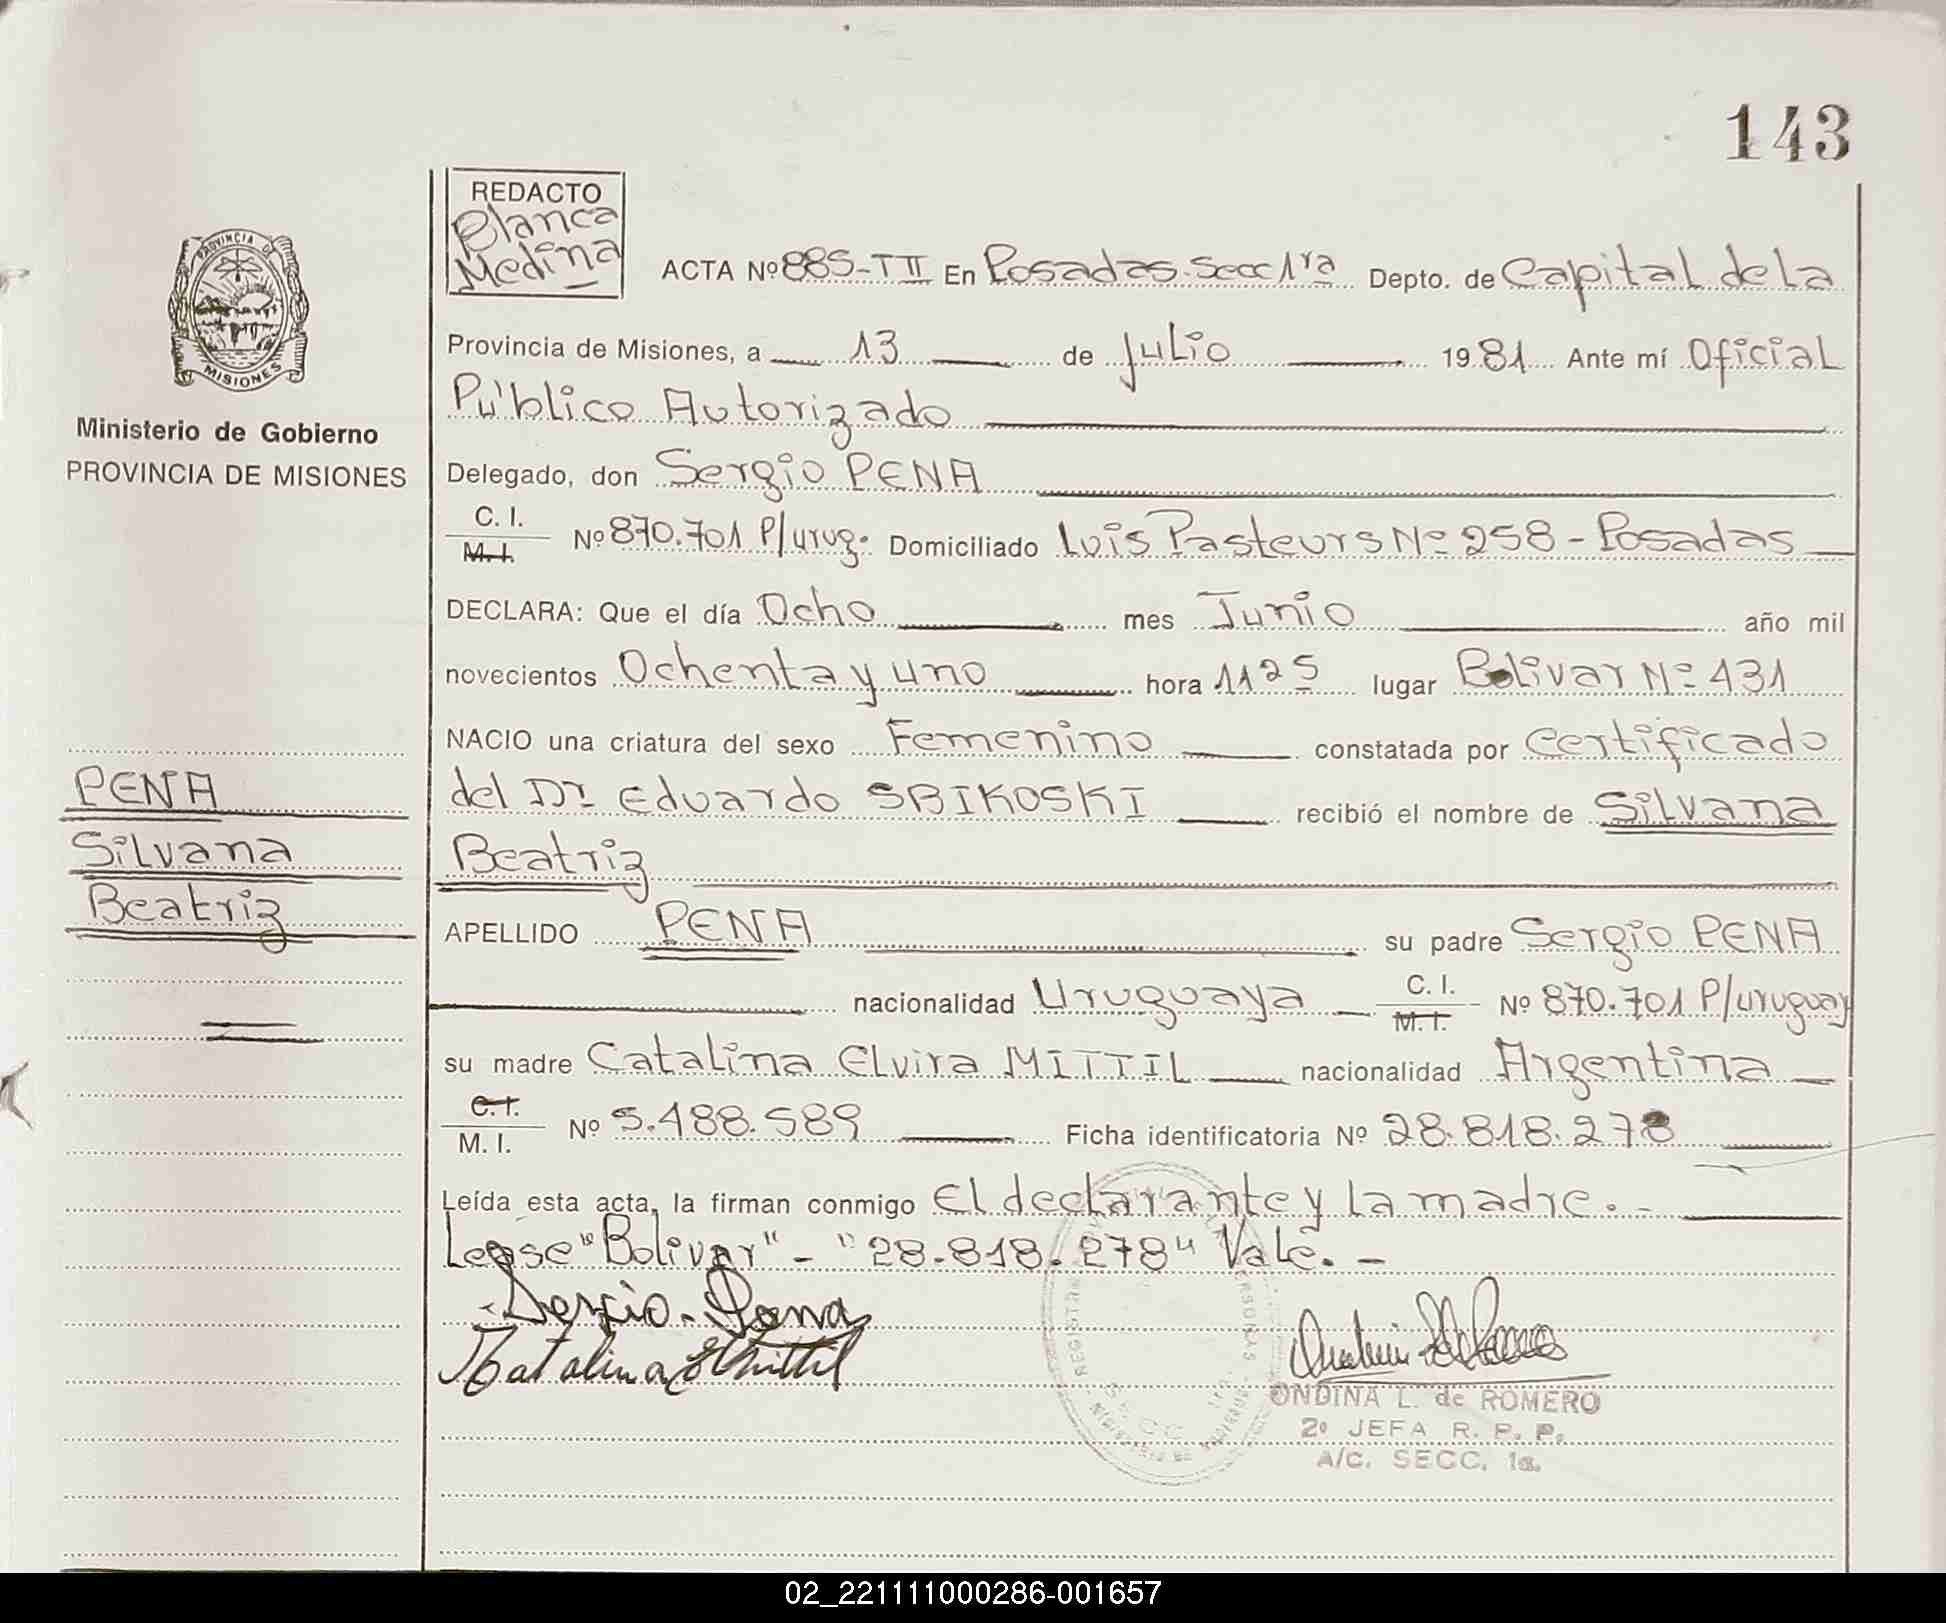 143
REDACTO
Blanca
Medina
PROVINCIA DE
MISIONES
Ministerio de Gobierno
PROVINCIA DE MISIONES
ACTA Nº 885-T II En Posadas. Secc 1ra Depto. de Capital de la
Provincia de Misiones, a 13 de Julio 1981 Ante mí Oficial
Público Autorizado
Delegado, don Sergio PENA
C. I.
M. I. Nº 870.701 P/urug. Domiciliado Luis Pasteurs Nº 258 - Posadas
DECLARA: Que el día Ocho mes Junio año mil
novecientos Ochenta y uno hora 11 25 lugar Bolivar Nº 431
NACIO una criatura del sexo Femenino constatada por Certificado
del Dr. Eduardo SBIKOSKI recibió el nombre de Silvana
Beatriz
PENA
Silvana
Beatriz
APELLIDO PENA su padre Sergio PENA
nacionalidad Uruguaya C. I.
M. I. Nº 870.701 P/uruguay
su madre Catalina Elvira MITTIL nacionalidad Argentina
C. I.
M. I. Nº 5.488.589 Ficha identificatoria Nº 28.818.278
Leída esta acta, la firman conmigo El declarante y la madre. -
Lease "Bolivar" - "28.818.278" Vale. -
Sergio Pena
Catalina E Mittil
ONDINA L. de ROMERO
2º JEFA R. P. P.
A/C. SECC. 1a.
02_221111000286-001657